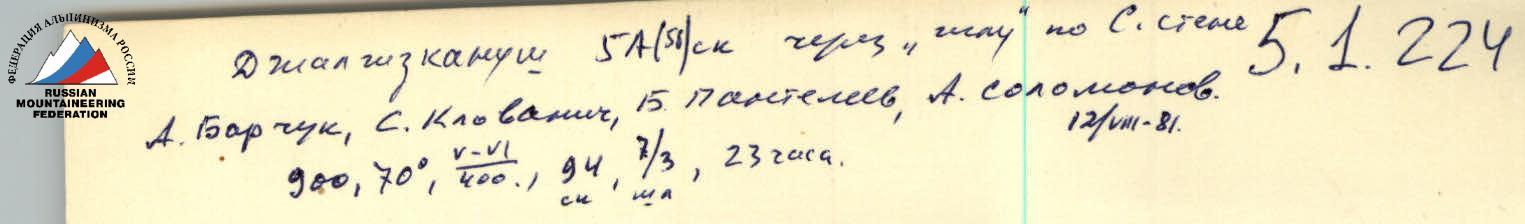 ФЕДЕРАЦИЯ АЛЬПИНИЗМА РОССИИ
RUSSIAN
MOUNTAINEERING
FEDERATION
Джалгизкануш 5А(5б)ск через „иглу" по С. стене
5.1.224
А. Барчук, С. Клованич, Б. Пантелеев, А. Соломонов.
12/VIII-81.
900, 70°, V-VI/400., 94 ск, 7/3 шл, 23 часа.